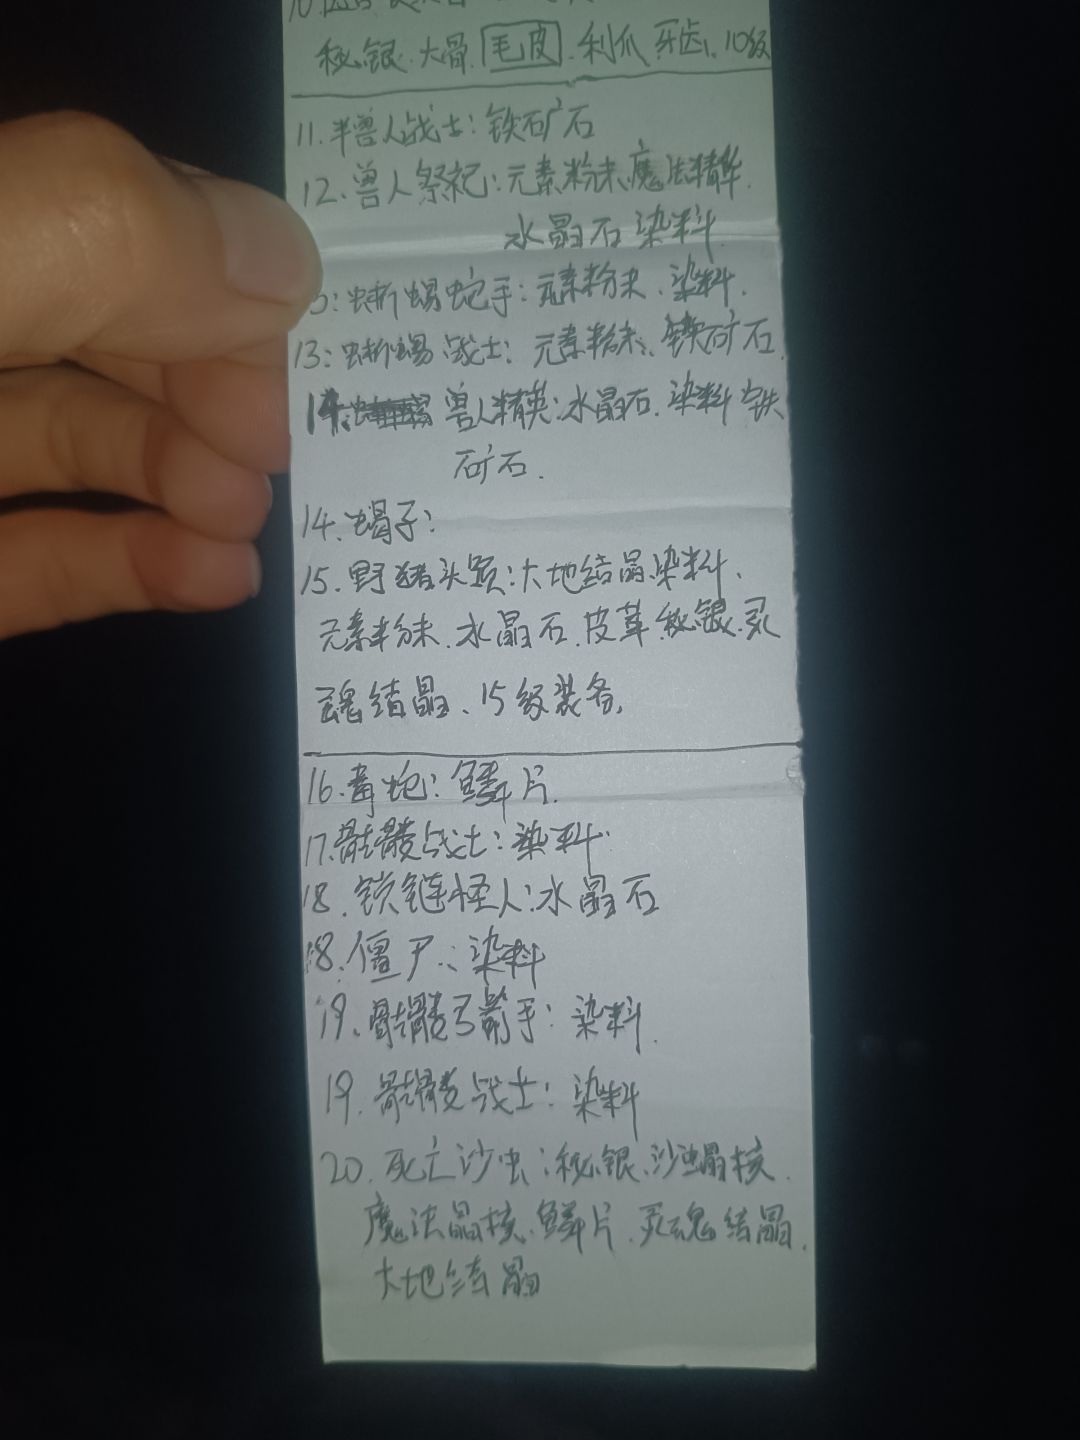 10.
秘银.大骨.毛皮.利爪.牙齿、10级
11.半兽人战士:铁矿石
12.兽人祭祀:元素粉末.魔法精华.
水晶石 染料
3:蜥蜴蛇手:元素粉末、染料.
13:蜥蜴战士:元素粉末、铁矿石.
14. 兽人精英:水晶石.染料 铁
矿石.
14.蝎子:
15.野猪头领:大地结晶.染料、
元素粉末.水晶石.皮革.秘银.灵
魂结晶、15级装备,
16.毒蛇:鳞片.
17.骷髅战士:染料.
18.锁链怪人:水晶石
18.僵尸:染料
19.骷髅弓箭手:染料.
19.骷髅战士:染料
20.死亡沙虫:秘银、沙虫晶核.
魔法晶核.鳞片.灵魂结晶.
大地结晶